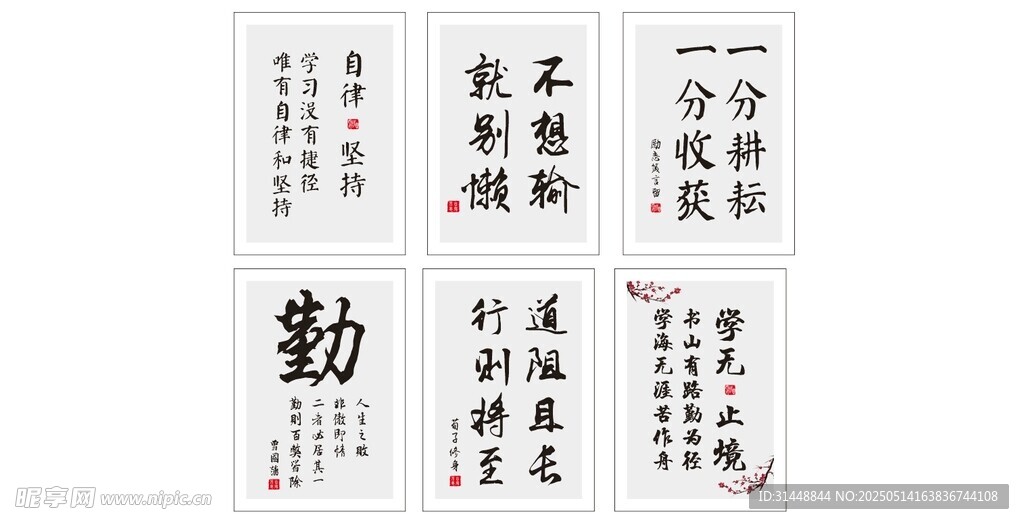 自律 坚持
学习没有捷径
唯有自律和坚持
不想输
就别懒
一分耕耘
一分收获
励志箴言留
勤
人生之败
非傲即惰
二者必居其一
勤则百弊皆除
曾国藩
道阻且长
行则将至
荀子修身
学无止境
书山有路勤为径
学海无涯苦作舟
昵享网 www.nipic.cn
ID:31448844 NO:20250514163836744108